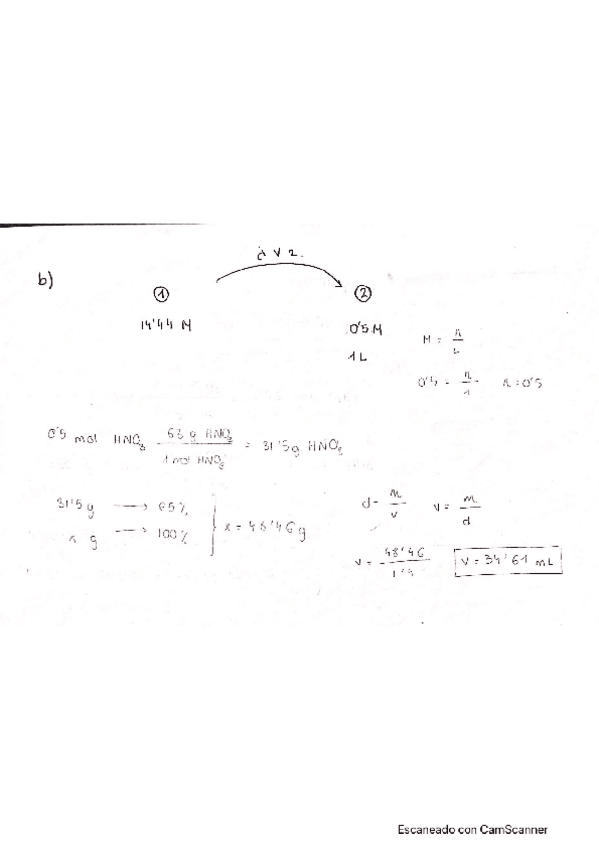 ¿ V 2.
b)
① ②
14'44 M 0'5 M
1 L
M = n / L
0'5 = n / 1 n = 0'5
0'5 mol HNO3 63 g HNO3 / 1 mol HNO3 = 31'5 g HNO3
31'5 g → 65%
x g → 100% } x = 48'46 g
d = m / v v = m / d
v = 48'46 / 1'4 V = 34'61 mL
Escaneado con CamScanner